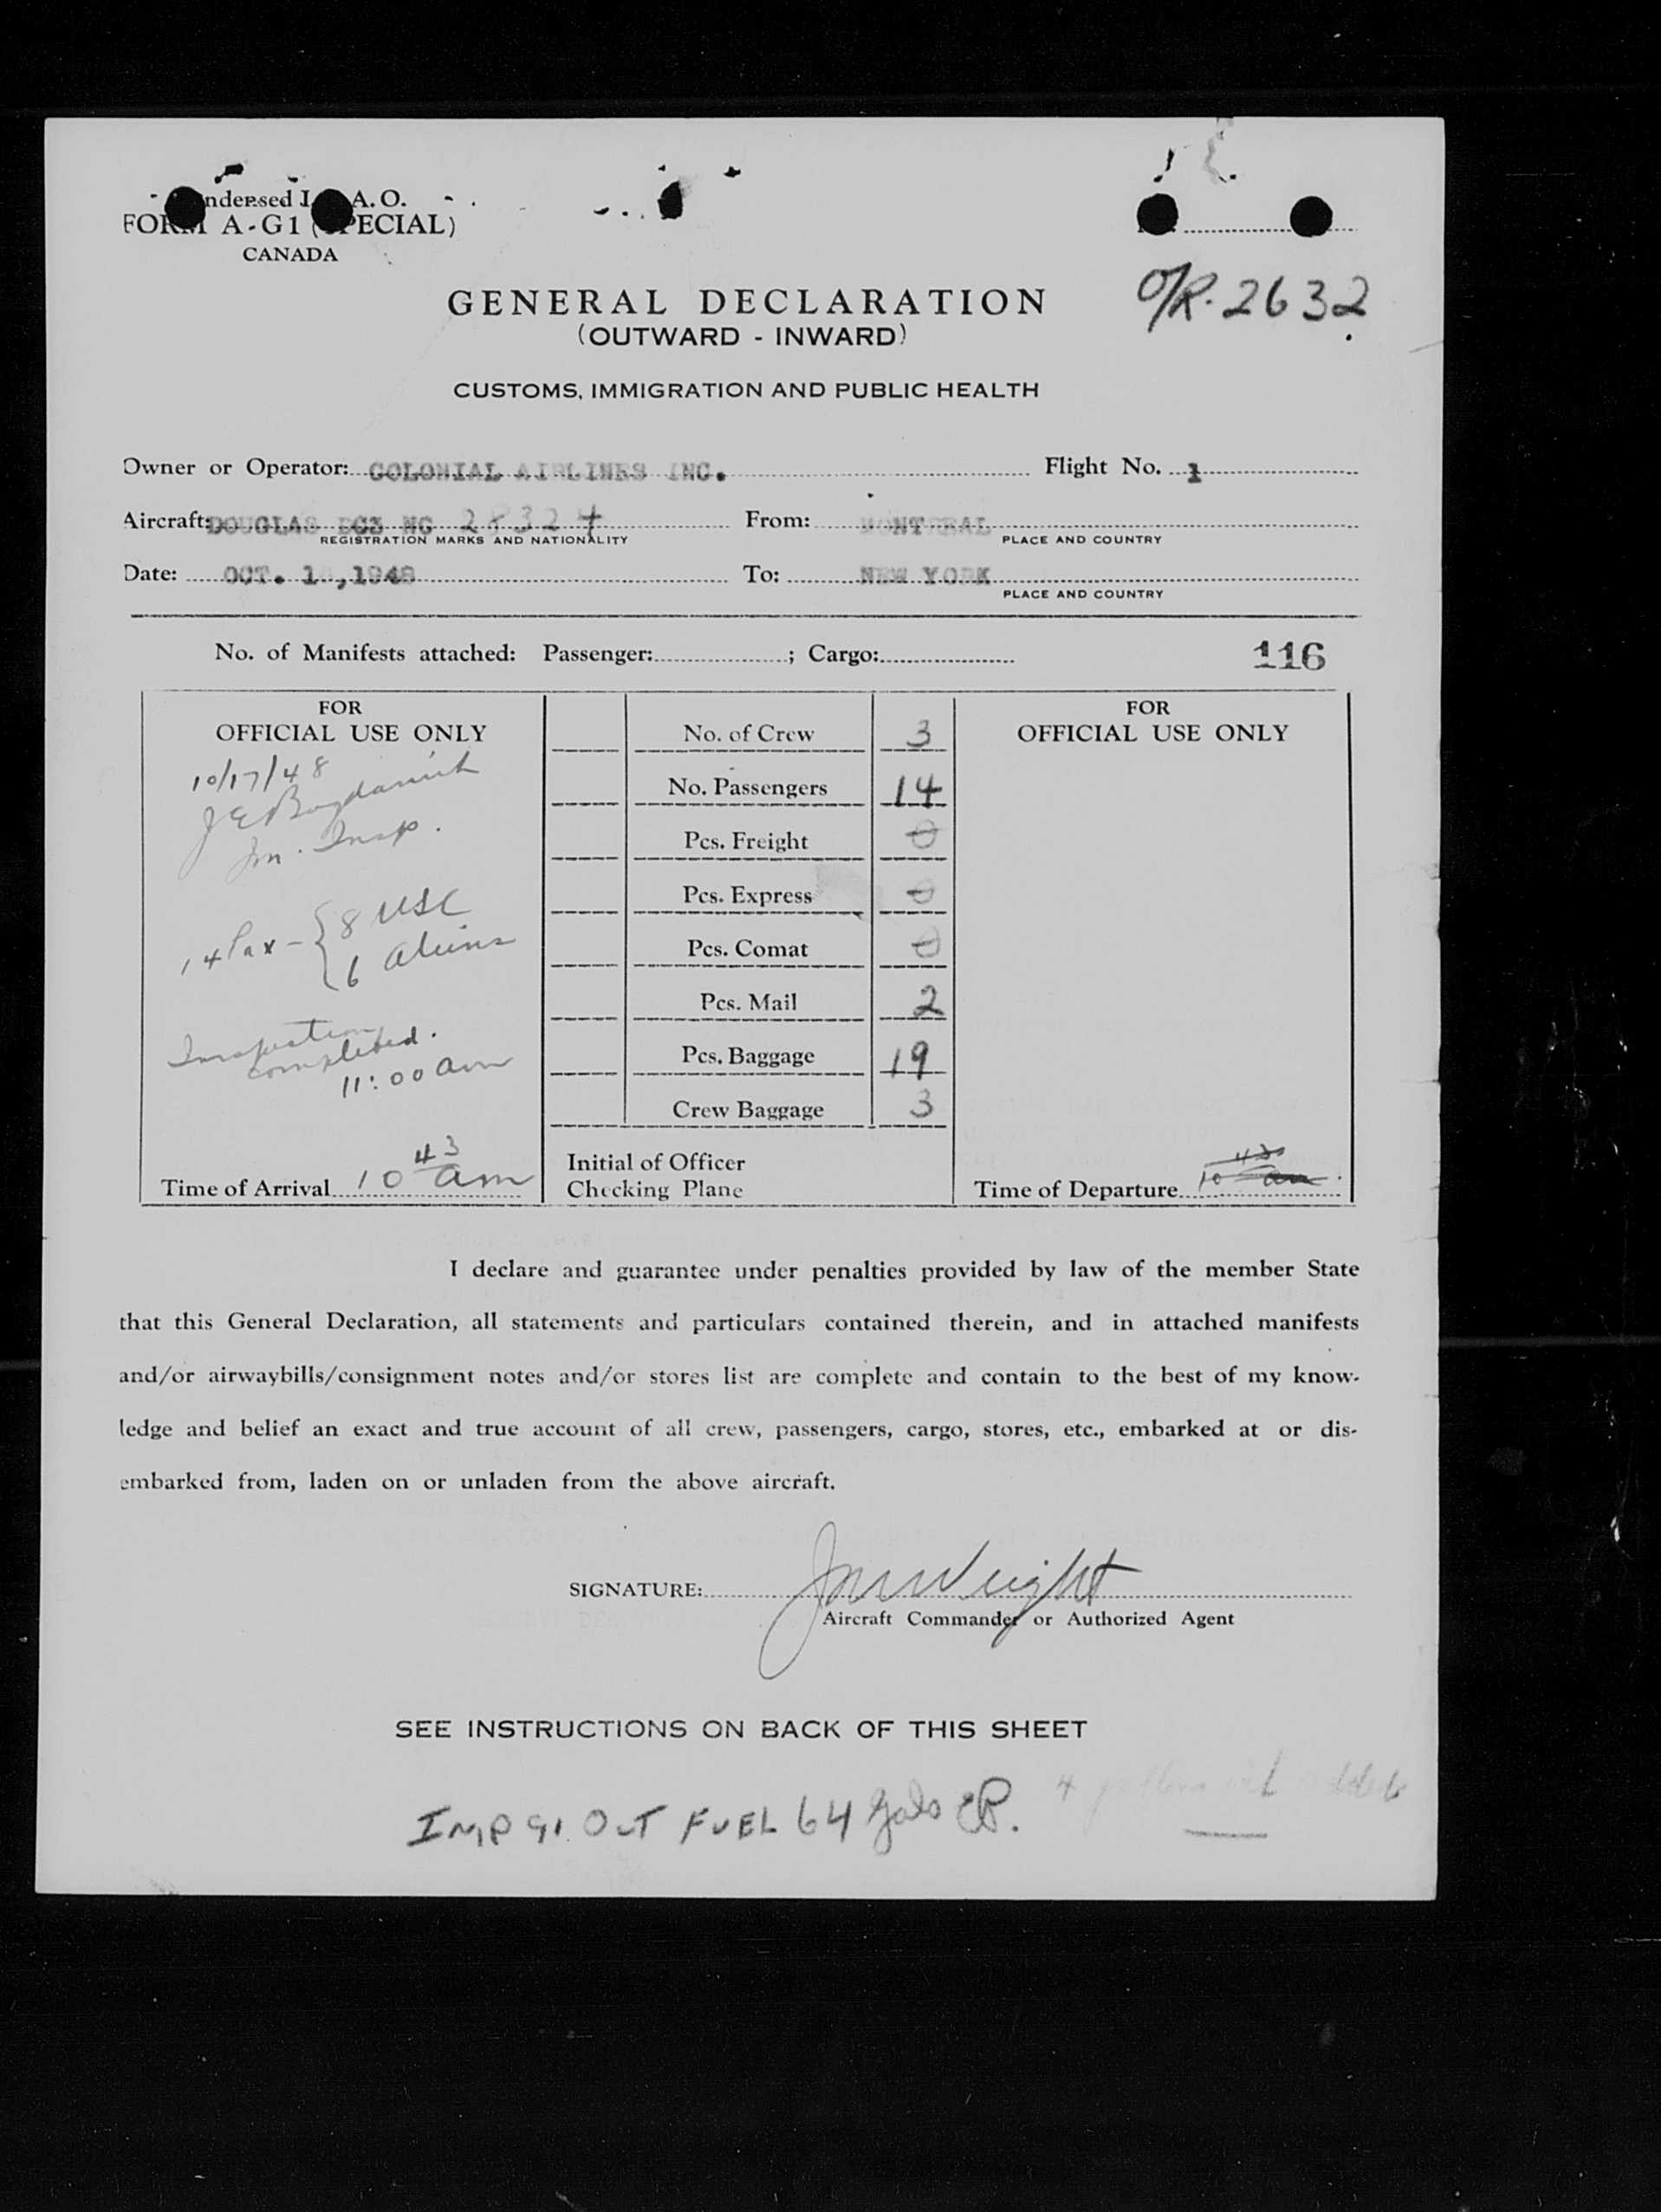 ndensed I A. O.
FORM A-G1 ( PECIAL)
CANADA
O/R. 2632
GENERAL DECLARATION
(OUTWARD - INWARD)
CUSTOMS, IMMIGRATION AND PUBLIC HEALTH
Owner or Operator: COLONIAL AIRLINES INC. Flight No. 1
Aircraft: DOUGLAS DC3 NC 28324 From: MONTREAL
REGISTRATION MARKS AND NATIONALITY PLACE AND COUNTRY
Date: OCT. 1 ,1948 To: NEW YORK
PLACE AND COUNTRY
No. of Manifests attached: Passenger: ; Cargo: 116
FOR
OFFICIAL USE ONLY
10/17/48
Im. Insp.
14 Pax - { 8 USC
6 aliens
Inspection
completed.
11:00 am
Time of Arrival 10 43 am
No. of Crew 3
No. Passengers 14
Pcs. Freight 0
Pcs. Express 0
Pcs. Comat 0
Pcs. Mail 2
Pcs. Baggage 19
Crew Baggage 3
Initial of Officer
Checking Plane
FOR
OFFICIAL USE ONLY
Time of Departure 10 43 am
I declare and guarantee under penalties provided by law of the member State
that this General Declaration, all statements and particulars contained therein, and in attached manifests
and/or airwaybills/consignment notes and/or stores list are complete and contain to the best of my know-
ledge and belief an exact and true account of all crew, passengers, cargo, stores, etc., embarked at or dis-
embarked from, laden on or unladen from the above aircraft.
SIGNATURE:
Aircraft Commander or Authorized Agent
SEE INSTRUCTIONS ON BACK OF THIS SHEET
IMP 91 OUT FUEL 64 gals